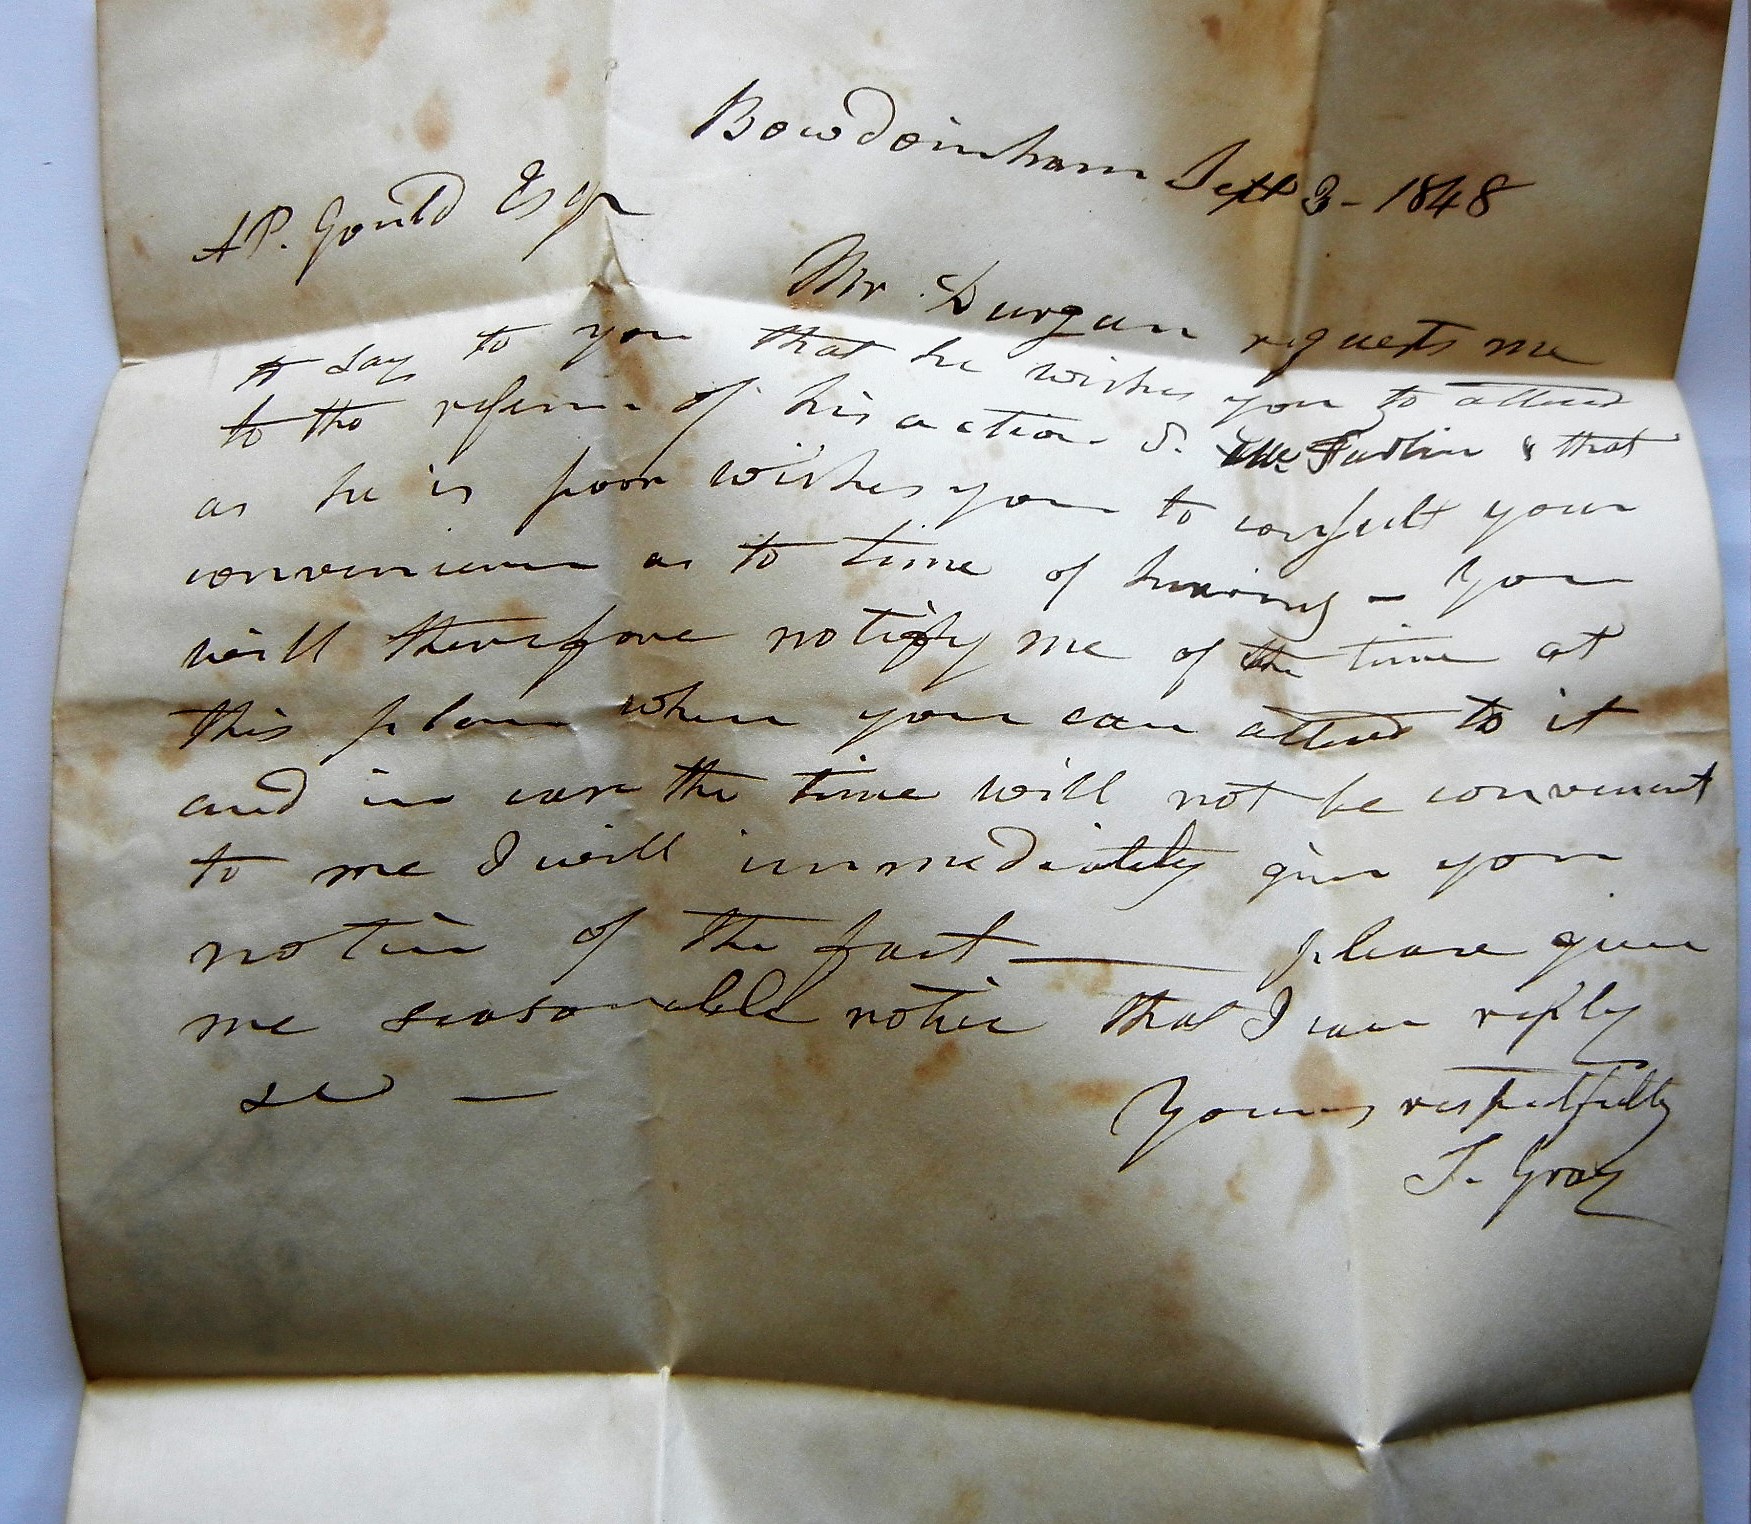 Bowdoinham Sept 3 - 1848
A P. Gould Esqr
Mr. Durgan requests me
to say to you that he wishes you to attend
to the reference of his action & that
as he is poor wishes you to consult your
convenience as to time of hearing - You
will therefore notify me of the time at
this place when you can attend to it
and in case the time will not be convenient
to me I will immediately give you
notice of the fact — please give
me seasonable notice that I can reply
Yours respectfully
J. Gray